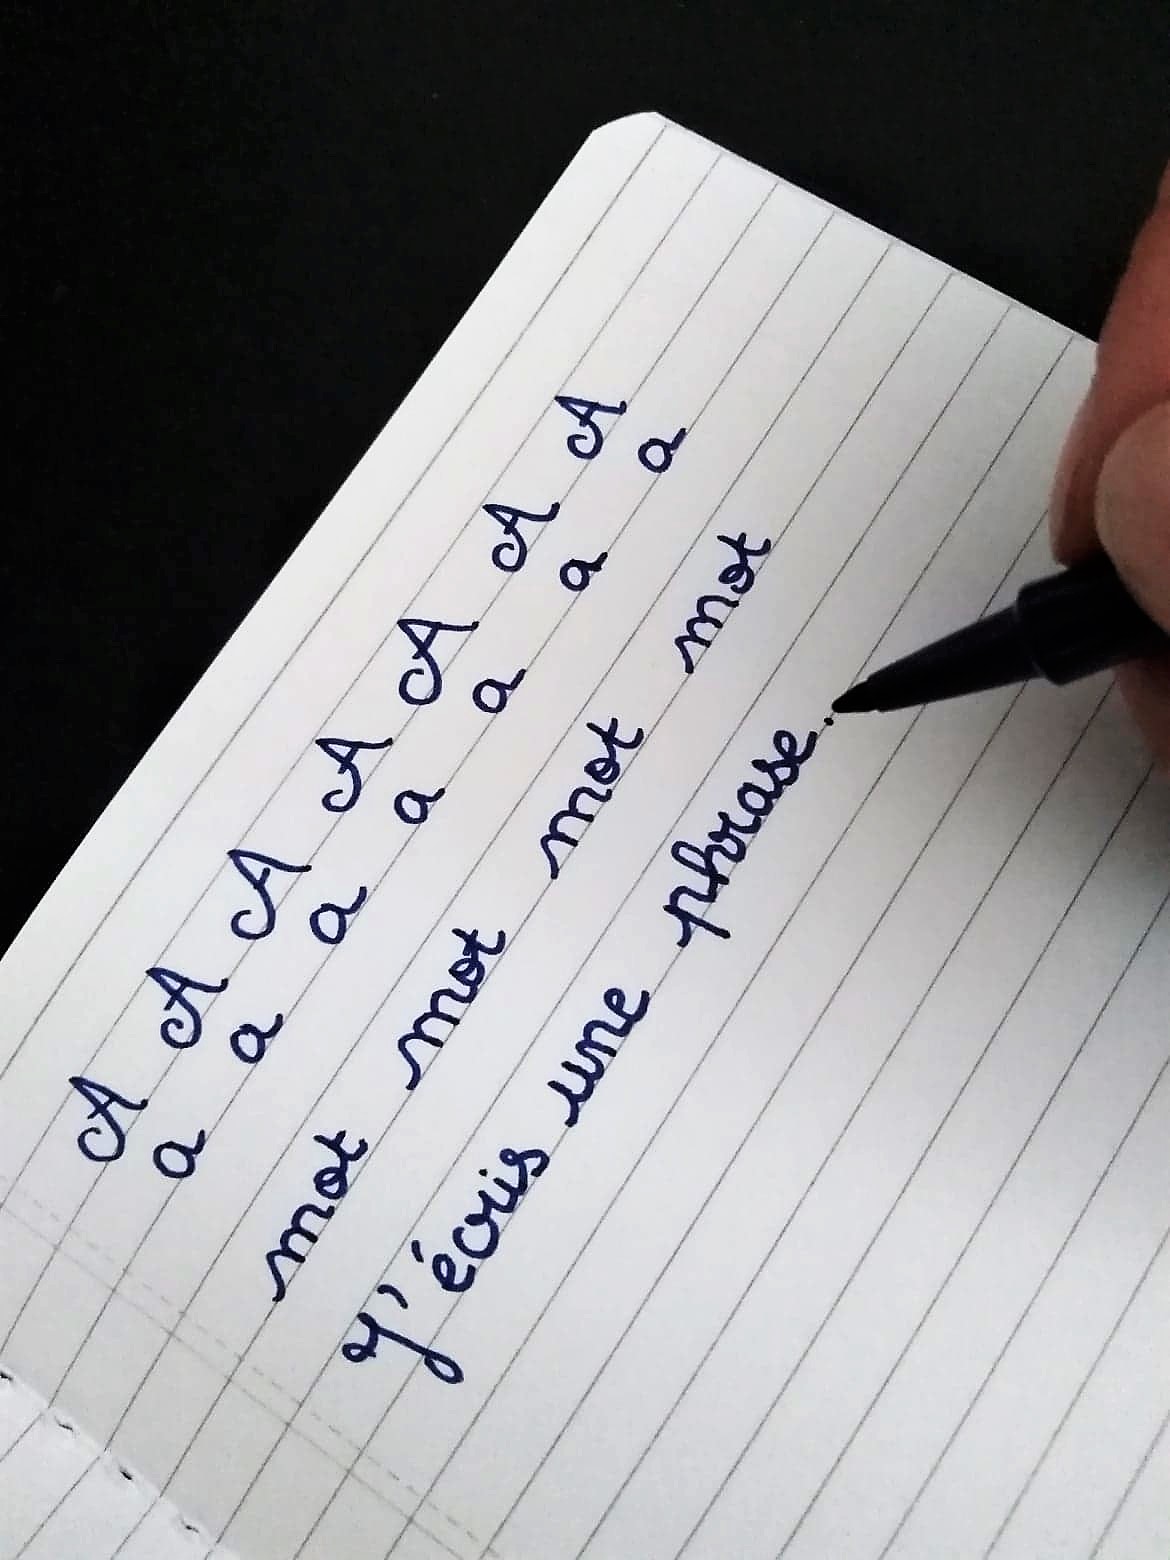 A A A A A A A
a a a a a a a
mot mot mot mot
J'écris une phrase.